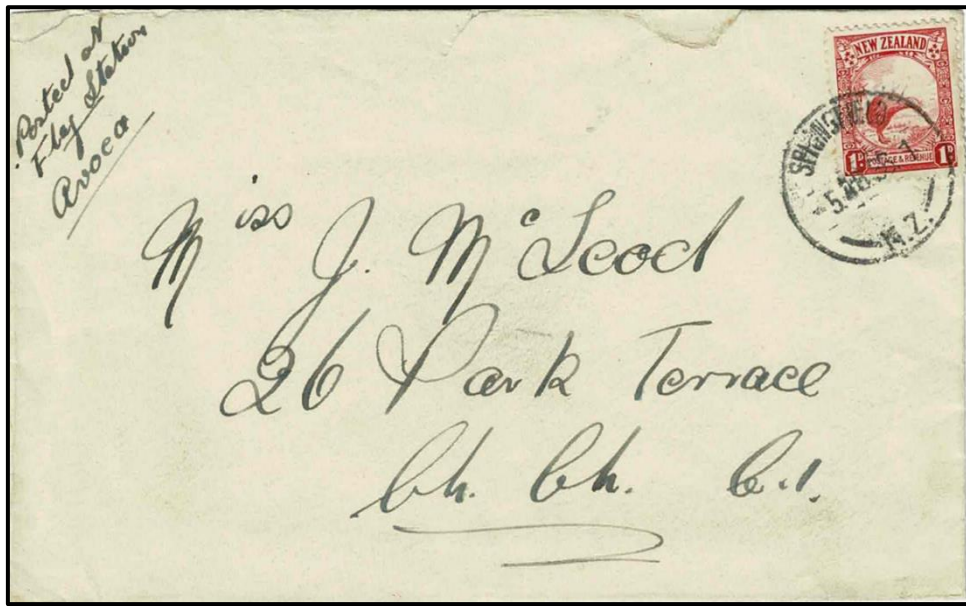 Posted at
Flag Station
Avoca
NEW ZEALAND
1D POSTAGE & REVENUE 1D
SPRINGFIELD
N.Z.
Miss J. McLeod
26 Park Terrace
Ch. Ch. C.1.